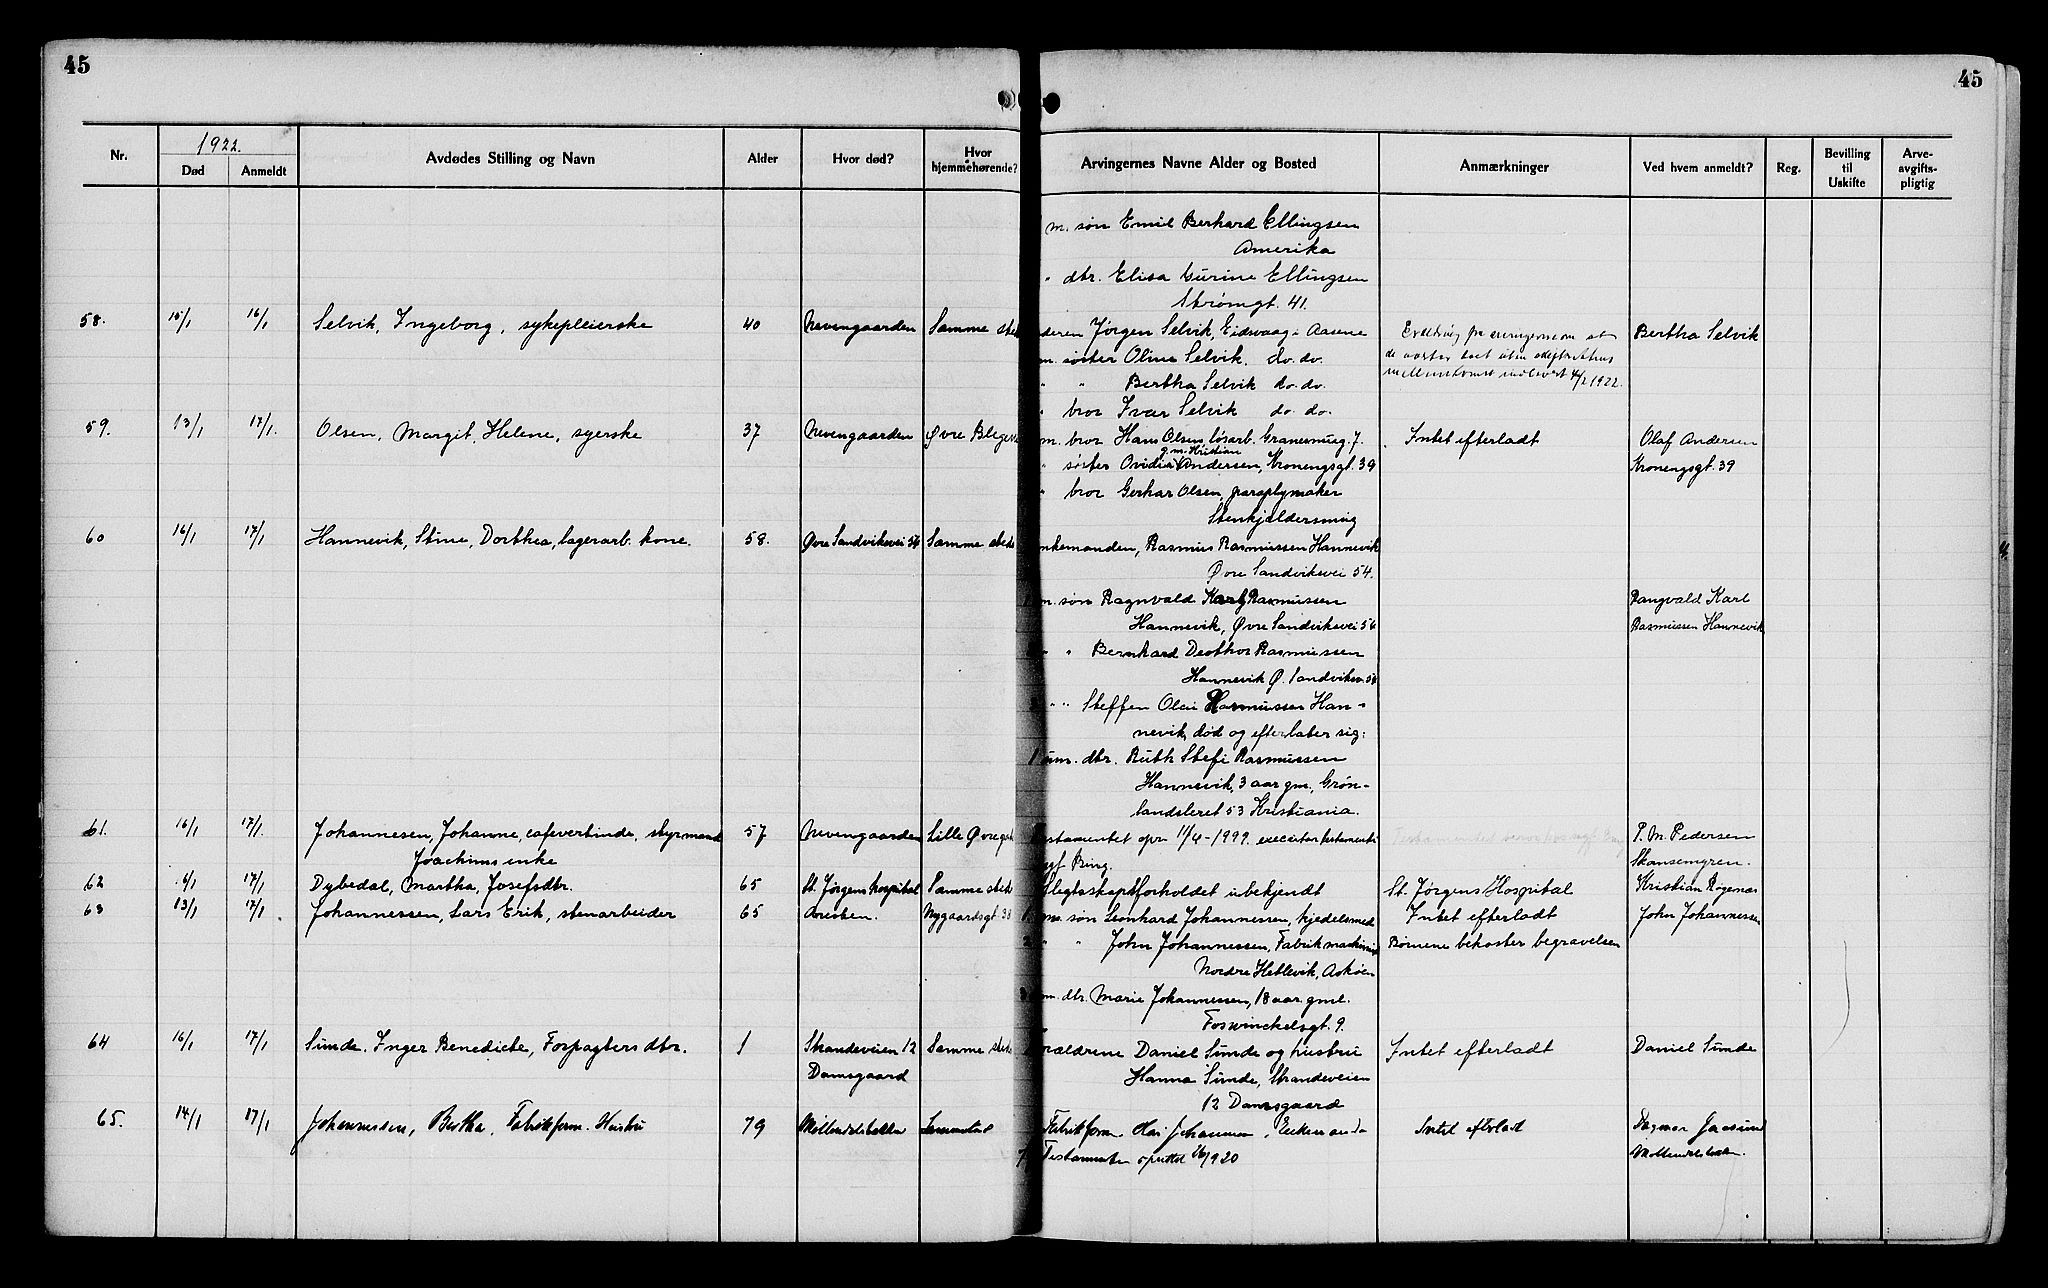 45
45
Nr.
1922.
Død
Anmeldt
Avdødes Stilling og Navn
Alder
Hvor død?
Hvor hjemmehørende?
Arvingernes Navne Alder og Bosted
Anmærkninger
Ved hvem anmeldt?
Reg.
Bevilling til Uskifte
Arve-avgifts-pligtig
m. søn Emil Berhard Ellingsen
Amerika
" dtr. Elisa Gurine Ellingsen
Strømgt. 41.
58. 15/1 16/1 Selvik, Ingeborg, sykepleierske 40 Nevengaarden Samme sted
deren Jørgen Selvik, Eidsvaag i Aasene
Bertha Selvik
m. søster Oline Selvik. do. do.
" " Bertha Selvik do. do.
4/2 1922.
" bror Ivar Selvik do. do.
59. 13/1 17/1. Olsen, Margit, Helene, syerske 37 Nevengaarden Øvre
m. bror Hans Olsen, løsarb. 7. Intet efterladt Olaf Andersen
g.m. Kristian
" søster Andersen, Kronengsgt. 39 Kronengsgt. 39
" bror Gerhar Olsen, paraplymaker
Stenkjeldersmug
60 16/1 17/1 Hannevik, Stine, Dorthea, lagerarb. kone. 58. Øvre Sandviksvei 54 Samme sted
enkemanden, Rasmus Rasmussen Hannevik
Øvre Sandviksvei 54.
m. søn Ragnvald Karl Rasmussen Rangvald Karl
Hannevik, Øvre Sandviksvei 54 Rasmussen Hannevik
" " Bernhard Rasmussen
Hannevik Ø. Sandviksv. 54
" " Steffen Olai Rasmussen Han-
nevik, død og efterlater sig:
1 um. dtr. Ruth Stefi Rasmussen
Hannevik, 3 aar gm., Grøn-
landsleret 53 Kristiania.
61. 16/1 17/1. Johannesen, Johanne, cafevertinde, styrmand 57 Nevengaarden Lille Øvregt
Testamentet opr 11/4-1999. executor testamenti P. M. Pedersen
Joachims enke
Bing. Skansemyren.
62 6/1 17/1 Dybedal, Martha, Josefsdtr. 65 St. Jørgens hospital Samme sted
Slegtsskapsforholdet ubekjendt St. Jørgens Hospital Kristian
63 13/1 17/1. Johannessen, Lars Erik, stenarbeider 65 Aresten. Nygaardsgt 38
1 m. søn Leonhard Johannessen, kjedelsmed Intet efterladt John Johannessen
2 " " John Johannessen, Fabrikmaskinist Børnene bekoster begravelsen
Nordre Hetlevik, Askøen
3 um. dtr. Marie Johannessen, 18 aar gml.
Foswinckelsgt. 9.
64 16/1 17/1 Sunde. Inger Benedicte, Forpagters dtr. 1 Strandeveien 12 Samme sted
Forældrene Daniel Sunde og hustru Intet efterladt Daniel Sunde
Damsgaard
Hanna Sunde, Strandeveien
12 Damsgaard
65. 14/1 17/1 Johannesen, Bertha, Fabrikform. Hustru 79 Møllendalsbakken Sammested
Fabrikform Johannesen, Enkemand Intet efterladt Dagmar
Testamente oprettet 1920 Møllendalsbakken.